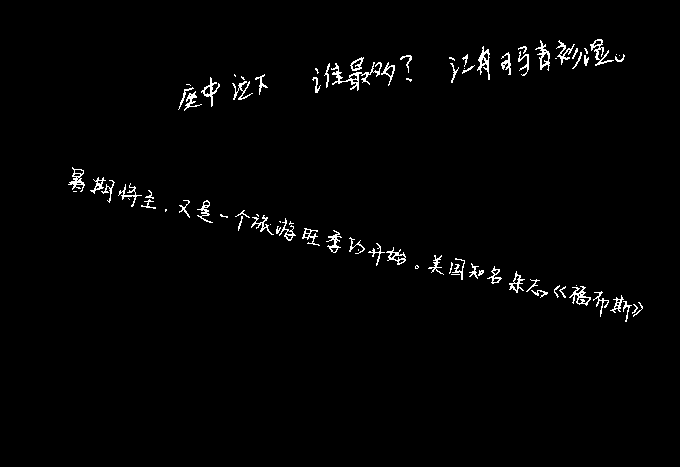 座中泣下 谁最多？ 江州司马青衫湿。
暑期将至，又是一个旅游旺季的开始。美国知名杂志《福布斯》